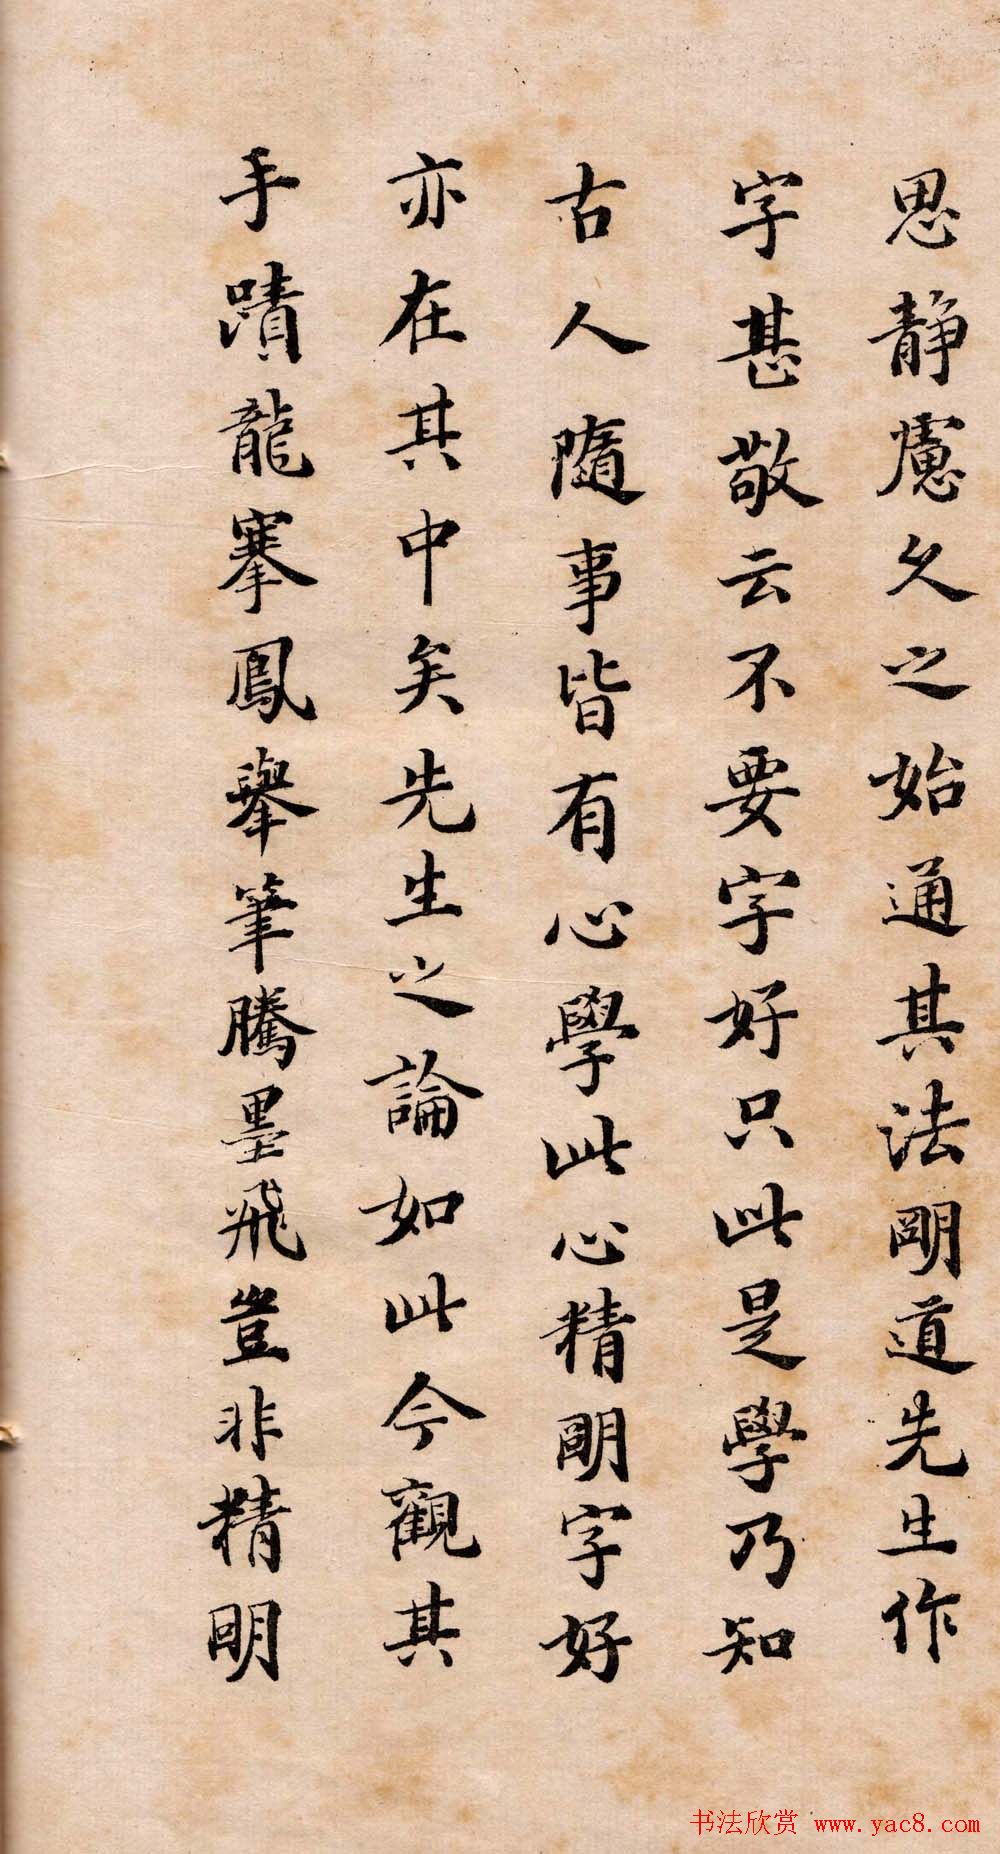 思静慮久之始通其法明道先生作
字甚敬云不要字好只此是學乃知
古人隨事皆有心學此心精明字好
亦在其中矣先生之論如此今觀其
手蹟龍搴鳳舉筆騰墨飛豈非精明
书法欣赏 www.yac8.com